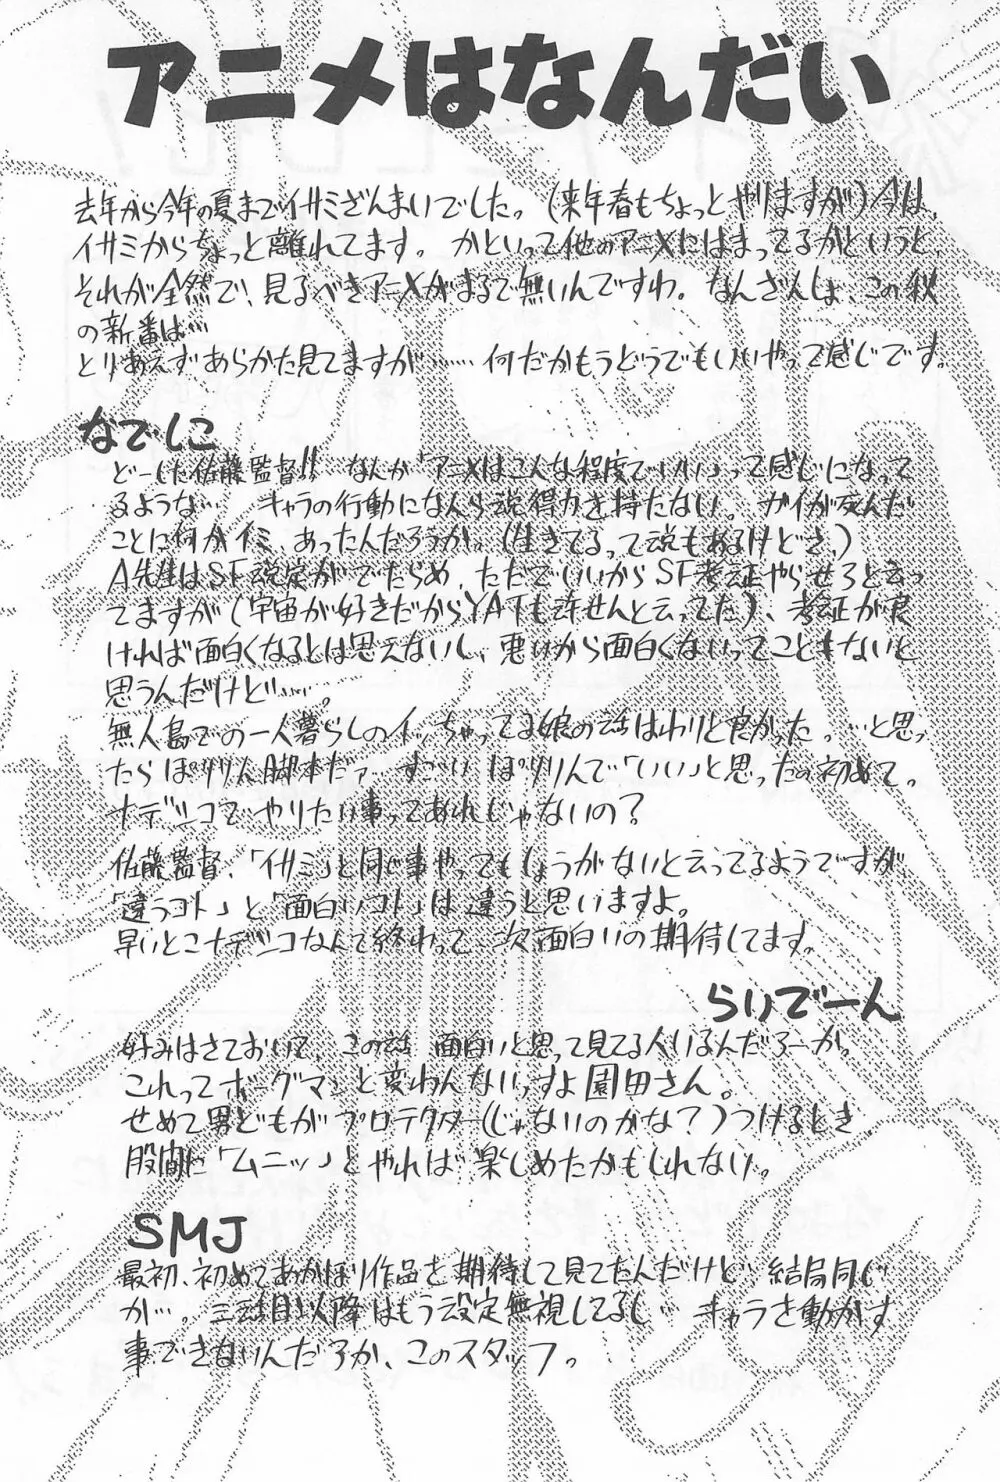 アニメはなんだい
去年から今年の夏までイサミざんまいでした。(来年春もちょっとやりますが)今は、
イサミからちょっと離れてます。かといって他のアニメにはまってるかというと、
それが全然で、見るべきアニメがまるで無いんですわ。なんざんしょ、この秋
の新番は…
とりあえずあらかた見てますが……何だかもうどうでもいいやって感じです。
なでしこ
どーした佐藤監督!! なんか「アニメはこんな程度でいい」って感じになって
るような… キャラの行動になんら説得力を持たない。ガイが死んだ
ことに何かイミ、あったんだろうか。(生きてるって説もあるけどさ、)
A先生はSF設定がでたらめ、ただでいいからSF考証やらせろと云っ
てますが(宇宙が好きだからYATも許せんと云ってた)、考証が良
ければ面白くなるとは思えないし、悪いから面白くないってこともないと
思うんだけど……。
無人島での一人暮らしのイッちゃってる娘の話はわりと良かった。…と思っ
たらぽりりん脚本だァ すごい ぽりりんで「いい」と思ったの初めて。
ナデシコでやりたい事ってあれじゃないの?
佐藤監督、「イサミ」と同じ事やってもしょうがないと云ってるようですが、
「違うコト」と「面白いコト」は違うと思いますよ。
早いとこナデシコなんて終わって 次、面白いの期待してます。
らいでーん
好みはさておいて、この話 面白いと思って見てる人いるんだろーか。
これってボーグマンと変わんないっすよ園田さん。
せめて男どもがプロテクター(じゃないのかな?)つけるとき
股間に「ムニッ」とやれば楽しめたかもしれない。
SMJ
最初、初めてあかほり作品を期待して見てたんだけど 結局同じ
か…。三話目以降はもう設定無視してるし… キャラを動かす
事できないんだろか、このスタッフ。